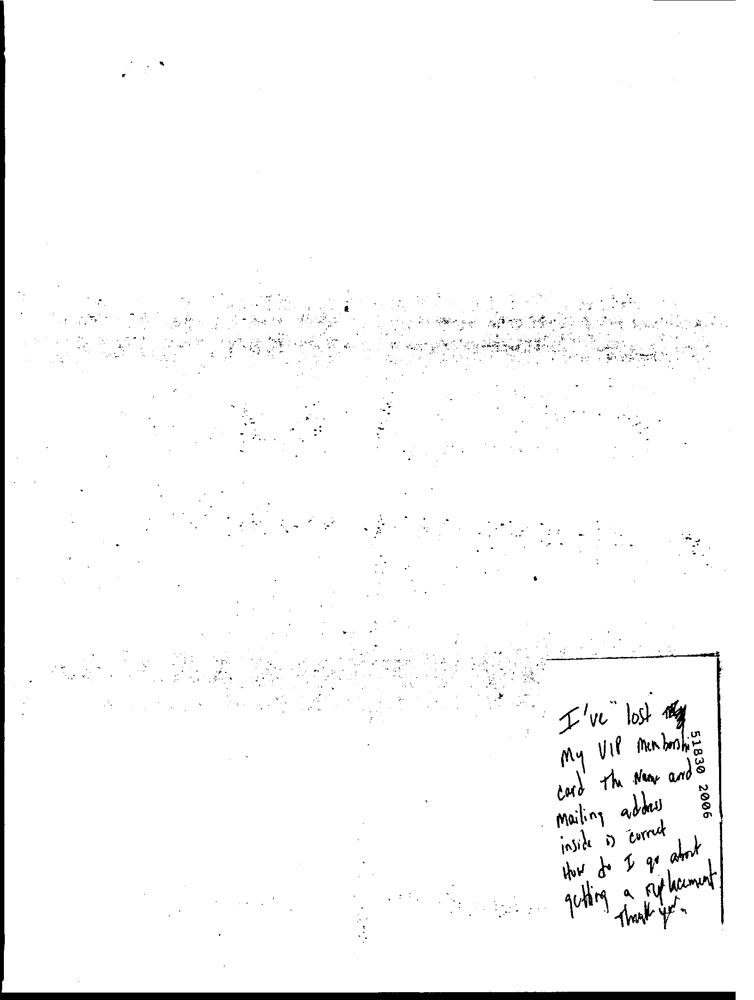 I've "lost"
My VIP Membership
card The Name and
Mailing address
inside is correct
How do I go about
getting a replacement
Thank you.
51830 2006